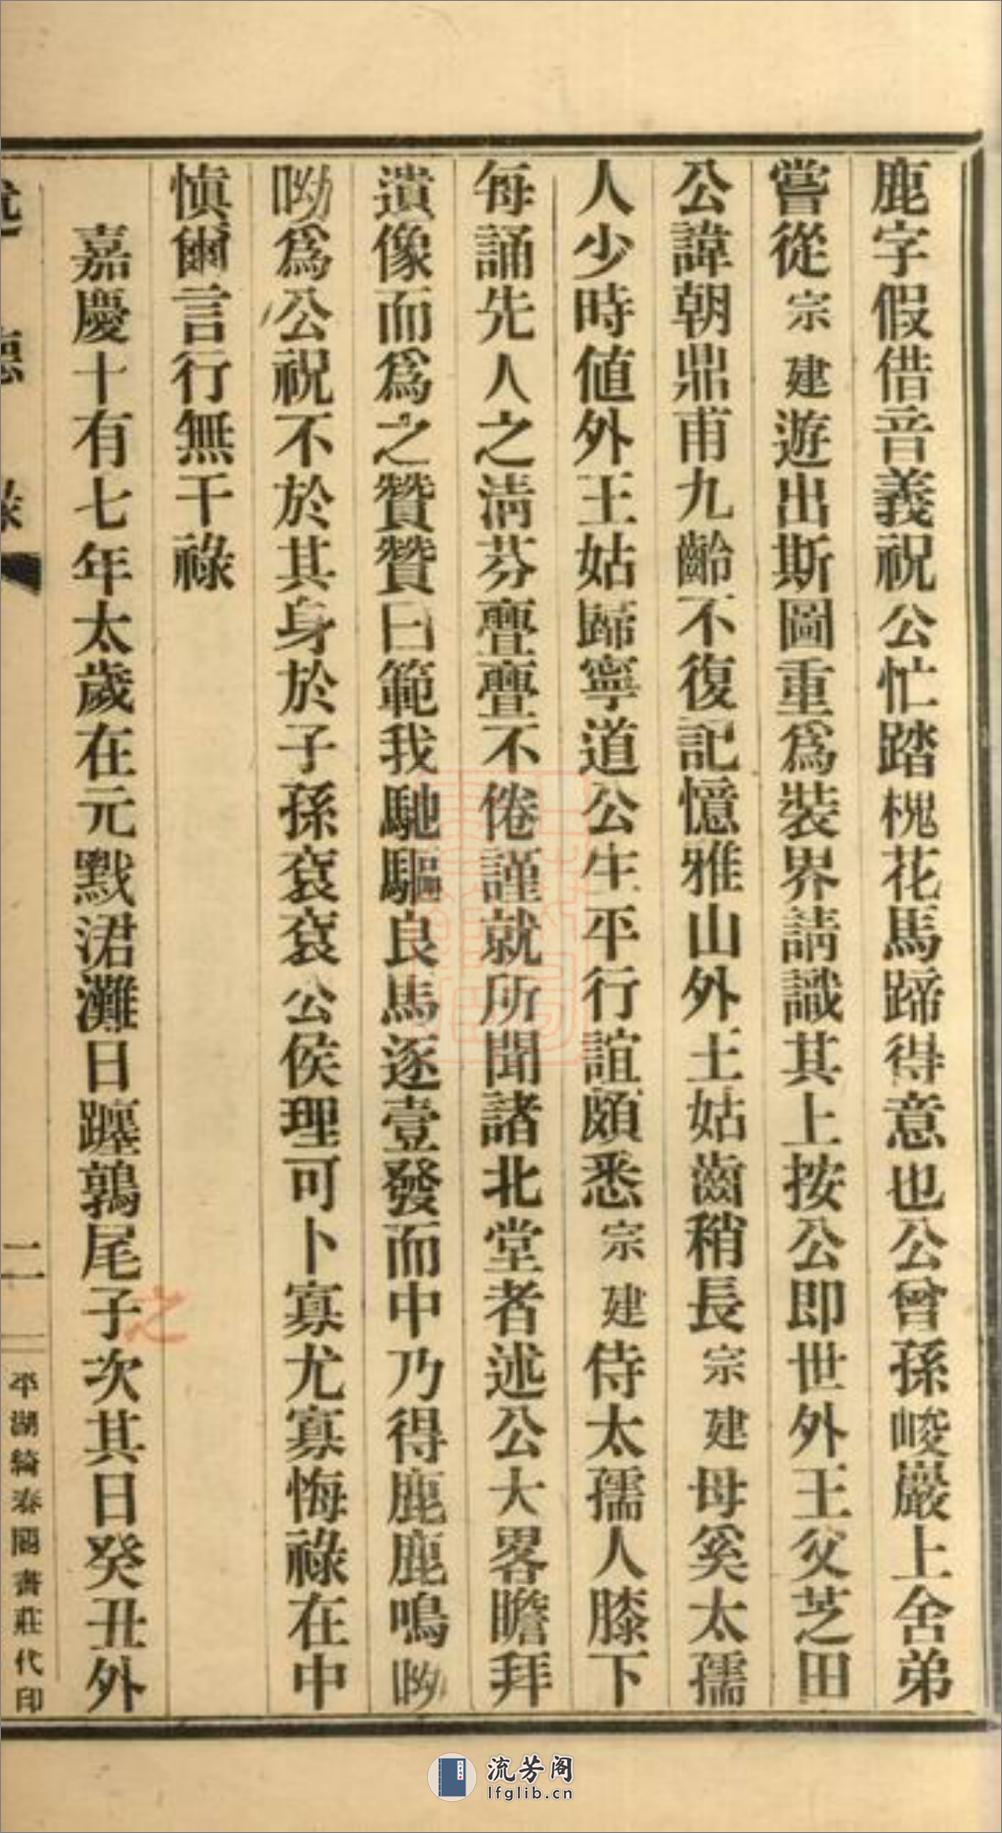 鹿字假借音義祝公忙踏槐花馬蹄得意也公曾孫峻巖上舍弟
嘗從宗建遊出斯圖重爲裝界請識其上按公即世外王父芝田
公諱朝鼎甫九齡不復記憶雅山外王姑齒稍長宗建母奚太孺
人少時値外王姑歸寧道公生平行誼頗悉宗建侍太孺人膝下
每誦先人之淸芬亹亹不倦謹就所聞諸北堂者述公大畧瞻拜
遺像而爲之贊贊曰範我馳驅良馬逐壹發而中乃得鹿鹿鳴呦
呦爲公祝不於其身於子孫袞袞公侯理可卜寡尤寡悔祿在中
愼爾言行無干祿
嘉慶十有七年太歲在元黓涒灘日躔鶉尾子次其日癸丑外
之
述德錄
二
平湖綺春閣書莊代印
流芳阁
lfglib.cn